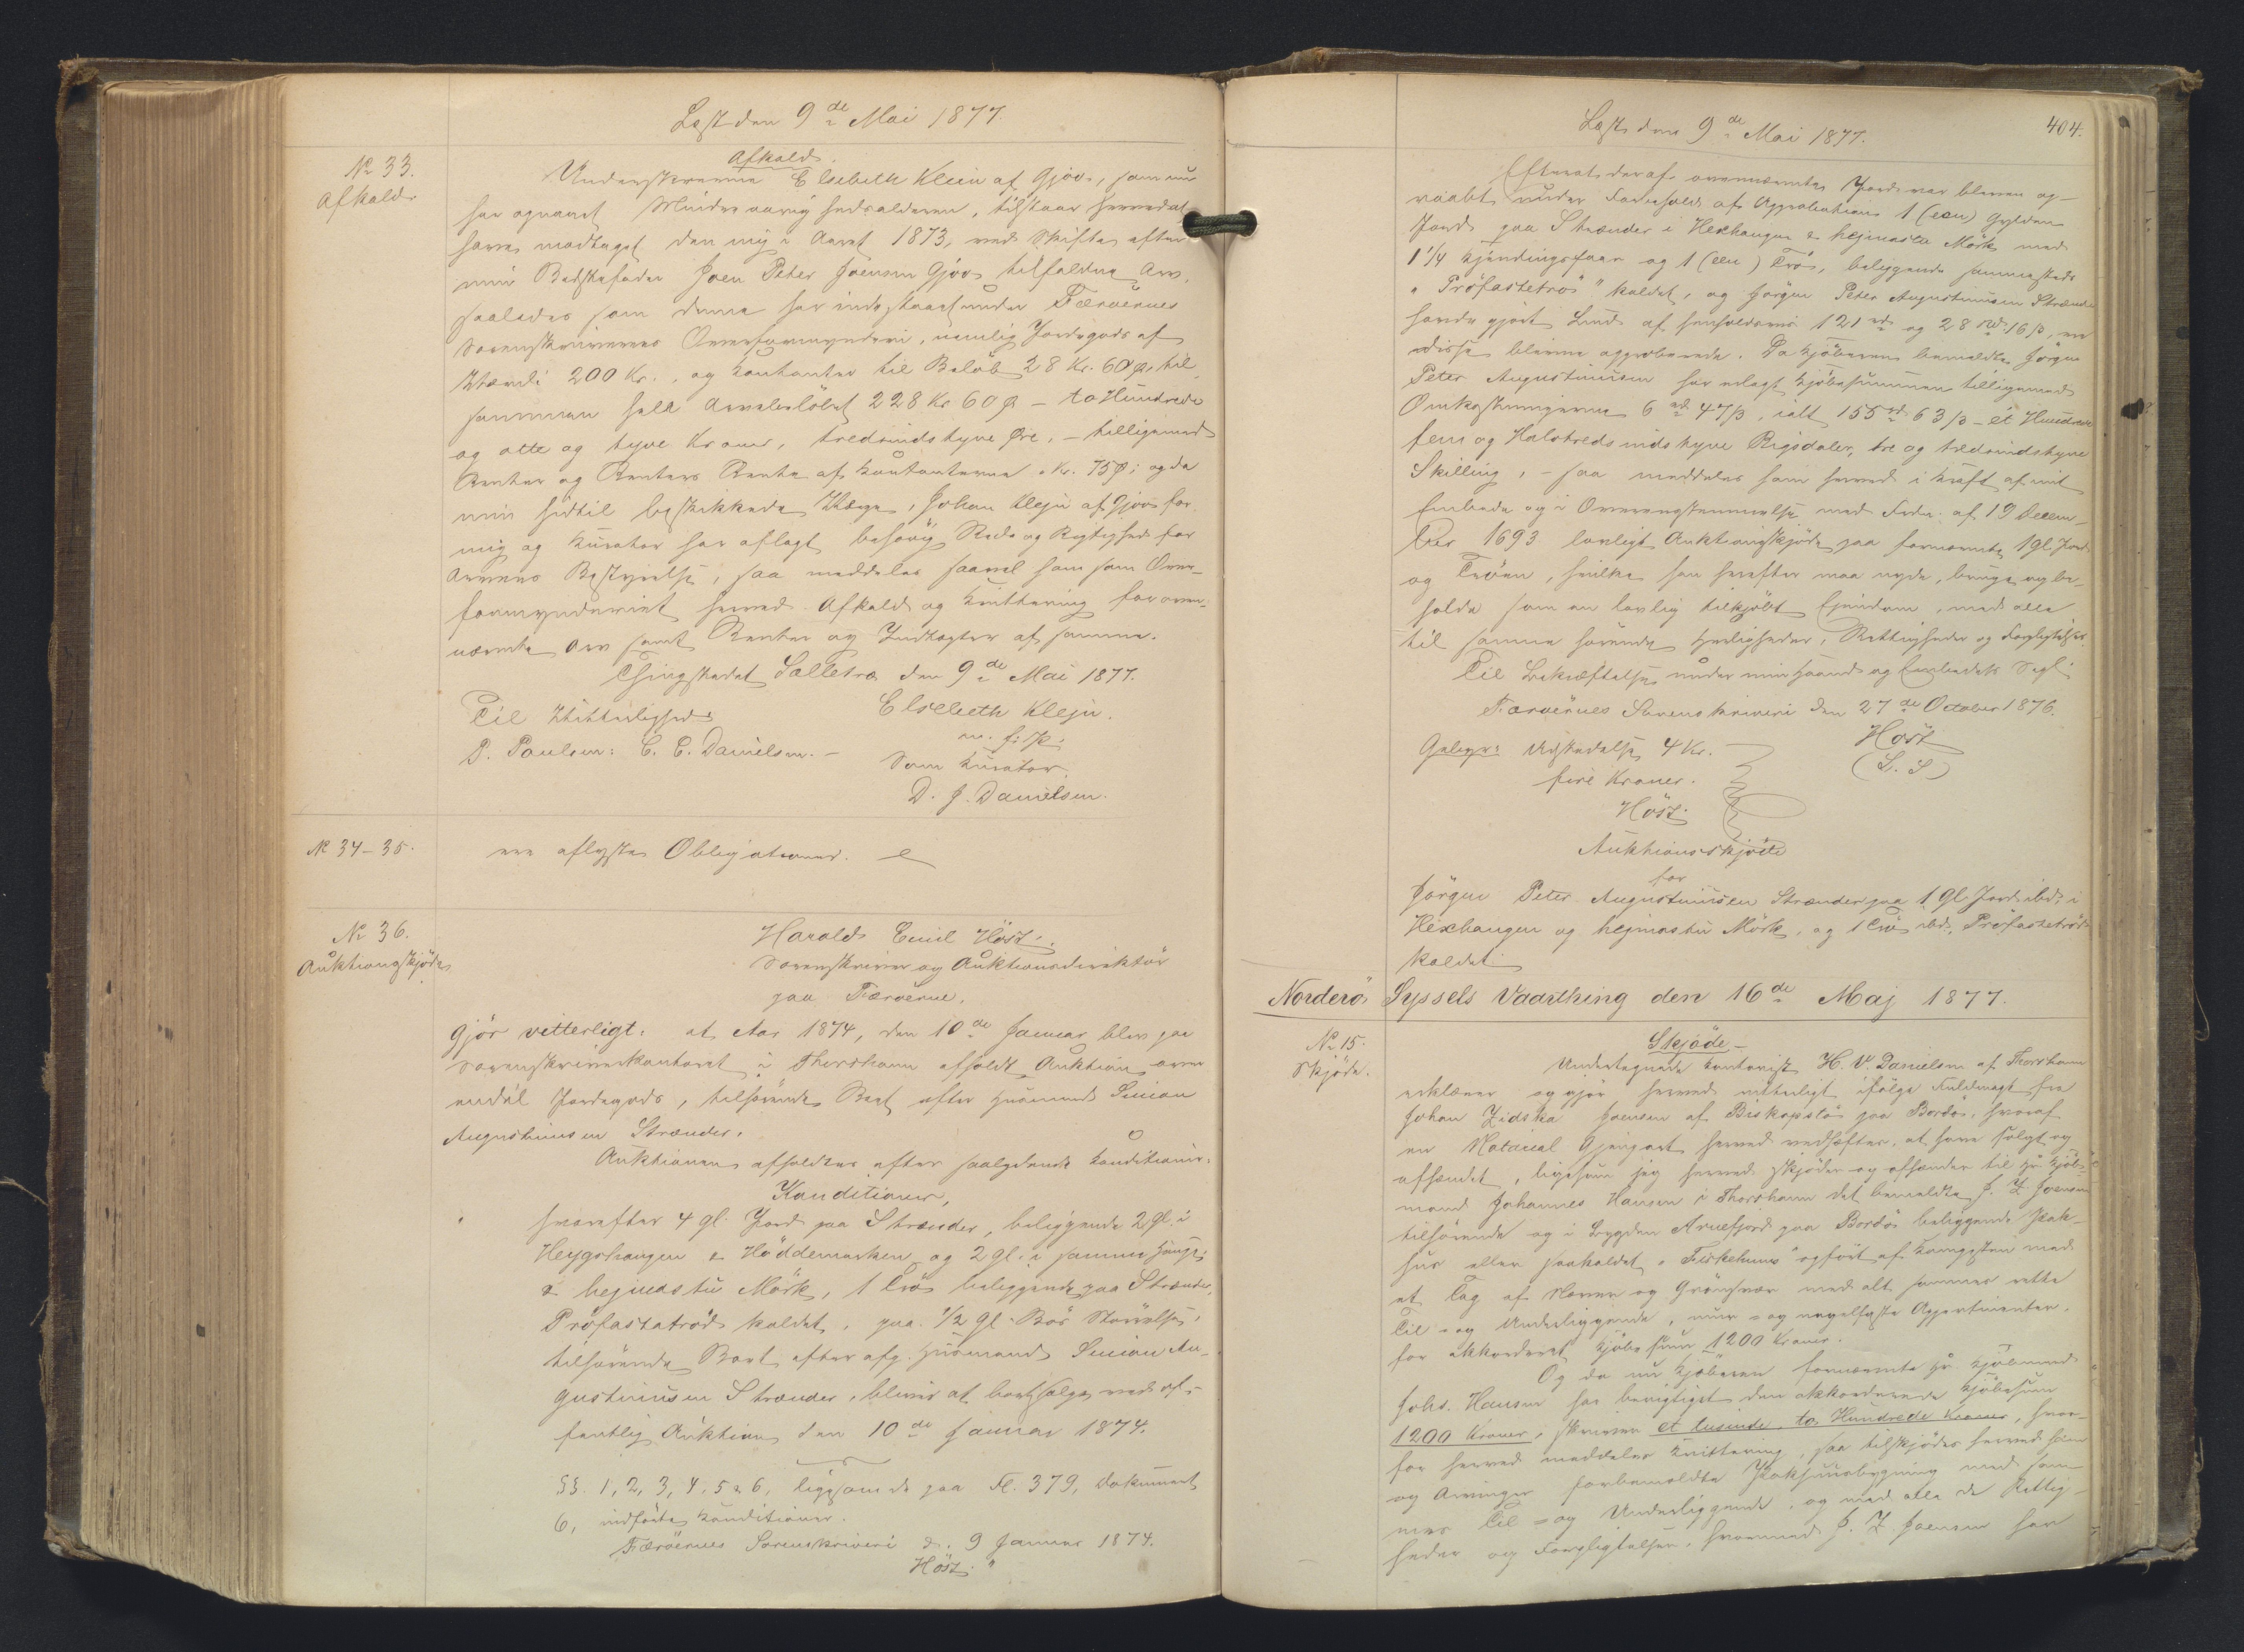 Læst den 9de Mai 1877.
No 33.
Afkald.
Afkald.
Underskrevne Elsebeth Klein af Gjov, som nu
har opnaaet Mindreaarighedsalderen, tilstaar herved at
have modtaget den mig i Aaret 1873, ved Skifte efter
min Bedstefader Joen Peter Joensen Gjov tilfaldne Arv,
saaledes som denne har indestaaet under Færøernes
Sorenskriveries Overformynderi, nemlig Jordegods af
Værdi 200 Kr., og Kontanter til Beløb 28 Kr. 60 Ø, til
sammen hele Arvebeløbet 228 Kr 60 Ø – to Hundrede
og otte og tyve Kroner, tredsindstyve Øre, – tilligemed
Renter og Renters Rente af Kontanterne Kr. 75 Ø; og da
min hidtil beskikkede Værge, Johan Klejn af Gjov for
mig og Kurator har aflagt behørig Rede og Rigtighed for
Arvens Bestyrelse, saa meddeles saavel ham som Over-
formynderiet herved Afkald og Kvittering for oven-
nævnte Arv samt Renter og Indtægter af samme.
Thingstedet Selletræ den 9de Mai 1877.
Til Vitterlighed:
Elsebeth Klejn.
P. Poulsen: C. E. Danielsen. –
m. f. P.
Som Kurator.
D. J. Danielsen.
No 34–35.
ere aflyste Obligationer.
No 36.
Auktionsskjøde
Harald Emil Høst.
Sorenskriver og Auktionsdirektør
paa Færøerne,
Gjør vitterligt: at Aar 1874, den 10de Januar blev paa
Sorenskriverkontoret i Thorshavn afholdt Auktion over
endel Jordegods, tilhørende Boet efter Huusmand Simon
Augustinussen Strænder.
Auktionen afholdtes efter saalydende Konditioner:
Konditioner,
hvorefter 4 gl. Jord paa Strænder, beliggende 2 gl. i
Heygshaugen & Höddemarken og 2 gl. i samme Hauge
& hejmastu Mörk, 1 Trö beliggende paa Strænder,
Pröfastatröd kaldet, paa 1/2 gl. Bøs Størrelse,
tilhørende Boet efter afg. Huusmand Simon Au-
gustinussen Strænder, bliver at bortsælge ved of-
fentlig Auktion den 10de Januar 1874.
§§. 1, 2, 3, 4, 5 & 6, ligesom de paa Fl. 379, Dokument
6, indførte Konditioner.
Færøernes Sorenskriveri d. 9 Januar 1874.
Høst. "
Læst den 9de Mai 1877.
404.
Efterat deraf ovennævnte Jord var bleven op-
raabt under Forbehold af Approbation 1 (een) Gylden
Jord paa Strænder i Hexhaugen & hejmasta Mörk med
1 1/4 Kjendingsfaar og 1 (een) Trö, beliggende sammesteds
"Pröfastetrö" kaldet, og Jørgen Peter Augustinussen Strænder
havde gjort Bud af henholdsvis 121 rd og 28 rd. 16 ß, ere
disse blevne approberede. Da Kjøberen bemeldte Jørgen
Peter Augustinussen har erlagt Kjøbesummen tilligemed
Omkostningerne 6 rd 47 ß, ialt 155 rd 63 ß – ét Hundrede
fem og Halvtredsindstyve Rigsdaler, tre og tredsindstyve
Skilling, – saa meddeles ham herved i Kraft af mit
Embede og i Overensstemmelse med Frdn. af 19 Decem-
ber 1693 lovligt Auktionsskjøde paa fornævnte 1 gl. Jord
og Tröen, hvilke han herefter maa nyde, bruge og be-
holde som en lovlig tilkjøbt Ejendom, med alle
til samme hørende Herligheder, Rettigheder og Forpligtelser.
Til Bekræftelse under min Haand og Embedets Segl.
Færøernes Sorenskriveri den 27de October 1876.
Gebyr: Udstedelse 4 Kr.
Høst
fire Kroner.
(L. S)
Høst.
Auktionsskjøde
for
Jørgen Peter Augustinussen Strænder paa 1 Gl. Jord ibd. i
Hexhaugen og hejmastu Mörk, og 1 Trö ibd. Pröfastetröd
kaldet
Norderö Syssels Vaarthing den 16de Maj 1877.
No 15.
Skjøde.
Skjøde –
Undertegnede Kontorist H. V. Danielsen af Thorshavn
erklærer og gjør herved vitterligt ifølge Fuldmagt fra
Johan Zidska Joensen af Biskopstö paa Bordö, hvoraf
en Notarial Gjenpart herved vedhæftes, at have solgt og
afhændet, ligesom jeg herved skjøder og afhænder til Hr. Kjøb-
mand Johannes Hansen i Thorshavn det bemeldte J. Z Joensen
tilhørende og i Bygden Arnefjord paa Bordö beliggende Pak-
huus eller saakaldet "Fiskehuus" opført af Kampesten med
et Tag af Næver og Grønsvær med alt sammes rette
Til- og Underliggende, muur- og nagelfaste Appertinentier,
for akkorderet Kjøbesum 1200 Kroner.
Og da nu Kjøberen fornævnte Hr. Kjøbmand
Johs. Hansen har berigtiget den akkorderede Kjøbesum
1200 Kroner, skriver et tusinde to Hundrede Kroner, hvor-
for herved meddeles Kvittering, saa tilskjødes herved ham
og Arvinger forbemeldte Pakhuusbygning med sam-
mes Til- og Underliggende, og med alle de Rettig-
heder og Forpligtelser, hvormed J. Z Joensen har